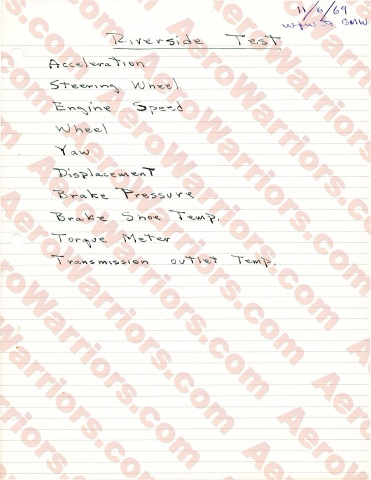 11/6/69
Riverside Test
Acceleration
Steering Wheel
Engine Speed
Wheel
Yaw
Displacement
Brake Pressure
Brake Shoe Temp.
Torque Meter
Transmission outlet Temp.
AeroWarriors.com